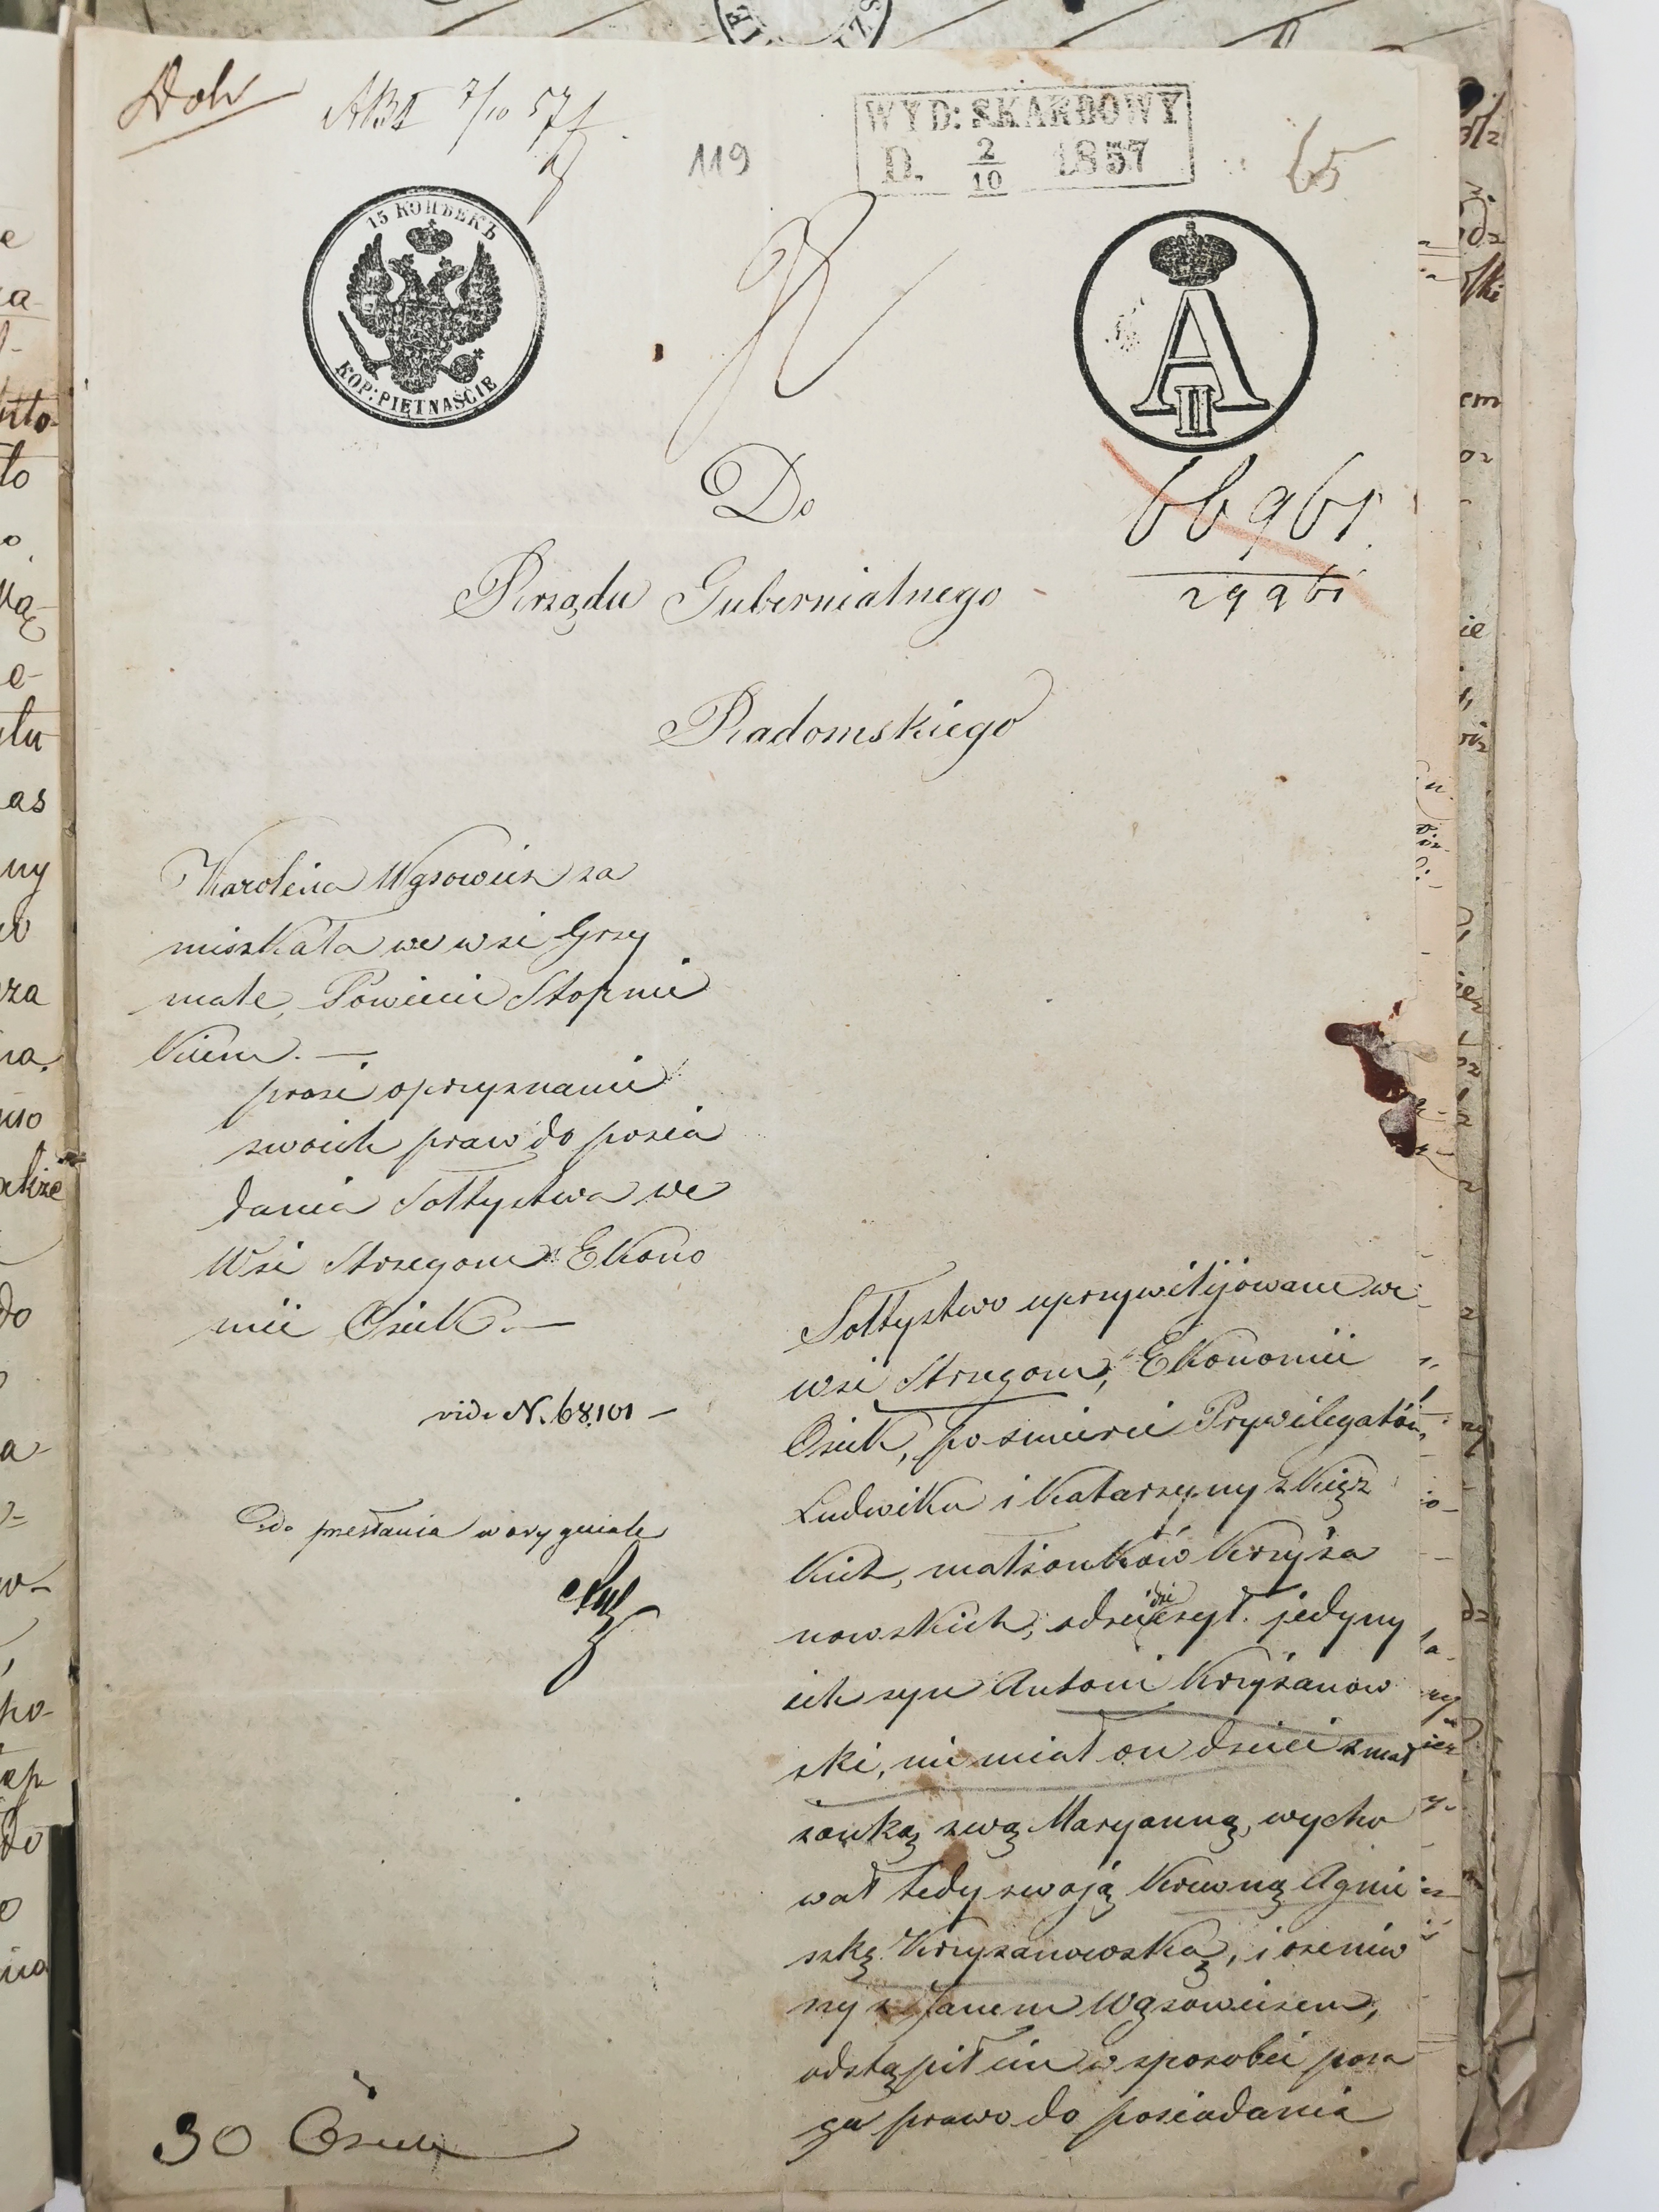 Dok
7/10 57
119
WYD: SKARBOWY
D. 2/10 1857
65
15 КОПѢЕКЪ
KOP: PIĘTNAŚCIE
A II
Do
66961.
29961
Rządu Gubernialnego
Radomskiego
Karolina Wąsowicz za
mieszkała we wsi Grzy
male, Powiecie Stopnic
kiem. —
prosi o przyznanie
swoich praw do posia
dania Sołtystwa we
Wsi Strzegom Ekono
mii Osiek. —
vide N. 68,101 —
do przesłania w oryginale
Sołtystwo uprzywilijowane we
wsi Strzegom, Ekonomii
Osiek, po śmierci Prywilegatów,
Ludwika i Katarzyny z Kięz
kich, małżonków Krzyża
nowskich, odziedziczył jedyny
ich syn Antoni Krzyżanow
ski, nie miał on dzieci z mał
żonką swą Maryanną, wycho
wał tedy swoją Krewną Agnie
szkę Krzyżanowską, i ożeniw
szy z Janem Wąsowiczem,
odstąpił im w sposobie posa
gu prawo do posiadania
30 Osiek